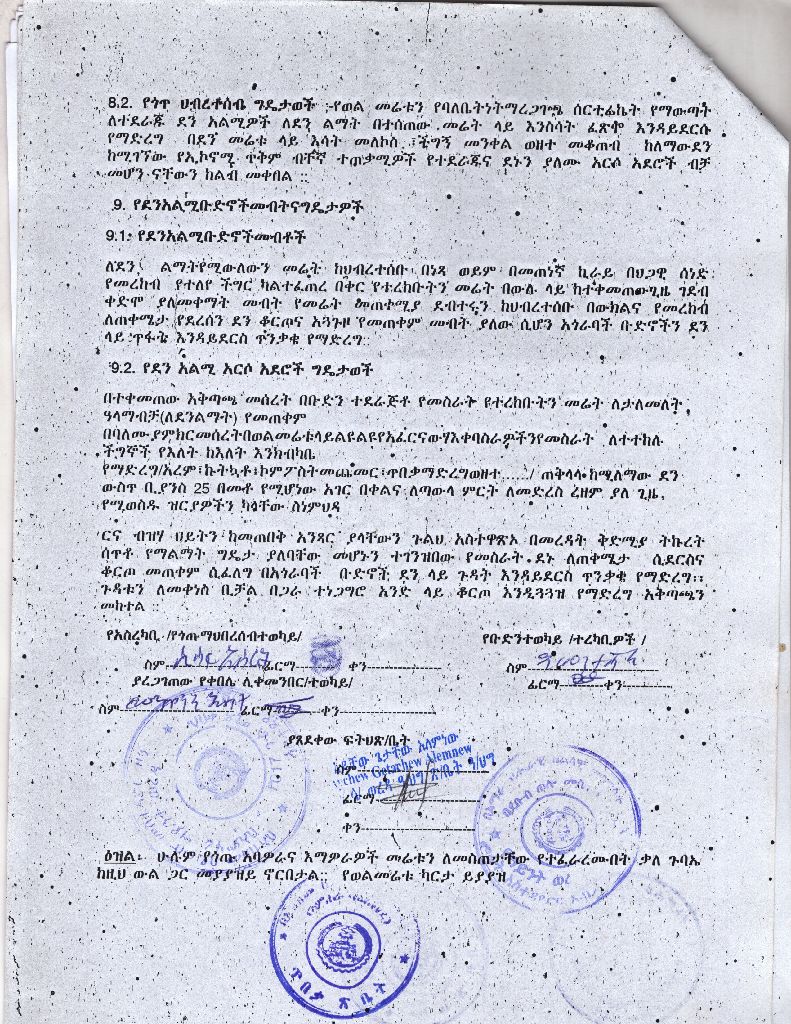 8.2. የጎጥ ህብረተሰብ ግዴታወች :-የወል መሬቱን የባለቤትነትማረጋገጫ ሰርቲፊኬት የማውጣት
ለተደራጁ ደን አልሚዎች ለደን ልማት በተሰጠው መሬት ላይ እንስሳት ፈጽሞ እንዳይደርሱ
የማድረግ በደን መሬቱ ላይ እሳት መለኮስ ፣ችግኝ መንቀል ወዘተ መቆጠብ ከለማውደን
ከሚገኘው የኢኮኖሚ ጥቅም ብቸኛ ተጠቃሚዎች የተደራጁና ደኑን ያለሙ አርሶ አደሮች ብቻ
መሆን ናቸውን ከልብ መቀበል ።
9. የደንአልሚቡድኖችመብትናግዴታዎች
9.1. የደንአልሚቡድኖችመብቶች
ለደን ልማትየሚውለውን መሬት ከህብረተሰቡ በነጻ ወይም በመጠነኛ ኪራይ በህጋዊ ሰነድ
የመረከብ የተለየ ችግር ካልተፈጠረ በቀር የተረከቡትን መሬት በውሉ ላይ ከተቀመጠውጊዜ ገደብ
ቀድሞ ያለመቀማት መብት የመሬት መጠቀሚያ ደብተሩን ከህብረተሰቡ በውክልና የመረከብ
ለጠቀሜታ የደረሰን ደን ቆርጦና አጓጉዞ የመጠቀም መብት ያለው ሲሆን አጎራባች ቡድኖችን ደን
ላይ ጥፋት እንዳይደርስ ጥንቃቄ የማድረግ።
9.2. የደን አልሚ አርሶ አደሮች ግዴታወች
በተቀመጠው አቅጣጫ መሰረት በቡድን ተደራጅቶ የመስራት የተረከቡትን መሬት ለታለመለት
ዓላማብቻ(ለደንልማት) የመጠቀም
በባለሙያምክርመሰረትበወልመሬቱላይልዩልዩየአፈርናውሃእቀባስራዎችንየመስራት ለተተከሉ
ችግኞች የእለት ከእለት እንክብካቤ
የማድረግ/አረም፣ኩትኳቶ፣ኮምፖስትመጨመር፣ጥበቃማድረግወዘተ....../ ጠቅላላ ከሚለማው ደን
ውስጥ ቢያንስ 25 በመቶ የሚሆነው አገር በቀልና ለጣውላ ምርት ለመድረስ ረዘም ያለ ጊዜ
የሚወስዱ ዝርያዎችን ካላቸው ስነምህዳ
ርና ብዝሃ ህይትን ከመጠበቅ አንጻር ያላቸውን ጉልህ አስተዋጽኦ በመረዳት ቅድሚያ ትኩረት
ሰጥቶ የማልማት ግዴታ ያለባቸው መሆኑን ተገንዝበው የመስራት ደኑ ለጠቀሜታ ሲደርስና
ቆርጦ መጠቀም ሲፈለግ በአጎራባች ቡድኖች ደን ላይ ጉዳት እንዳይደርስ ጥንቃቄ የማድረግ፡፡
ጉዳቱን ለመቀነስ ቢቻል በጋራ ተነጋግሮ አንድ ላይ ቆርጦ እንዲጓጓዝ የማድረግ አቅጣጫን
መከተል ።
የአስረካቢ /የጎጡማህበረሰብተወካይ/ የቡድንተወካይ /ተረካቢዎች /
ስም ፊርማ ቀን ስም
ያረጋገጠው የቀበሌ ሊቀመንበር/ተወካይ/ ፊርማ ቀን
ስም ፊርማ ቀን
ያጸደቀው ፍትህጽ/ቤት
ጌታቸው አለምነው
ስም Getachew Alemnew
ፊርማ
ቀን
ዕዝል፡ ሁሉም የጎጡ አባዎራና እማዎራዎች መሬቱን ለመስጠታቸው የተፈራረሙበት ቃለ ጉባኤ
ከዚህ ውል ጋር መያያዝይ ኖርበታል። የወልመሬቱ ካርታ ይያያዝ
ጥበቃ ጽ ቤት